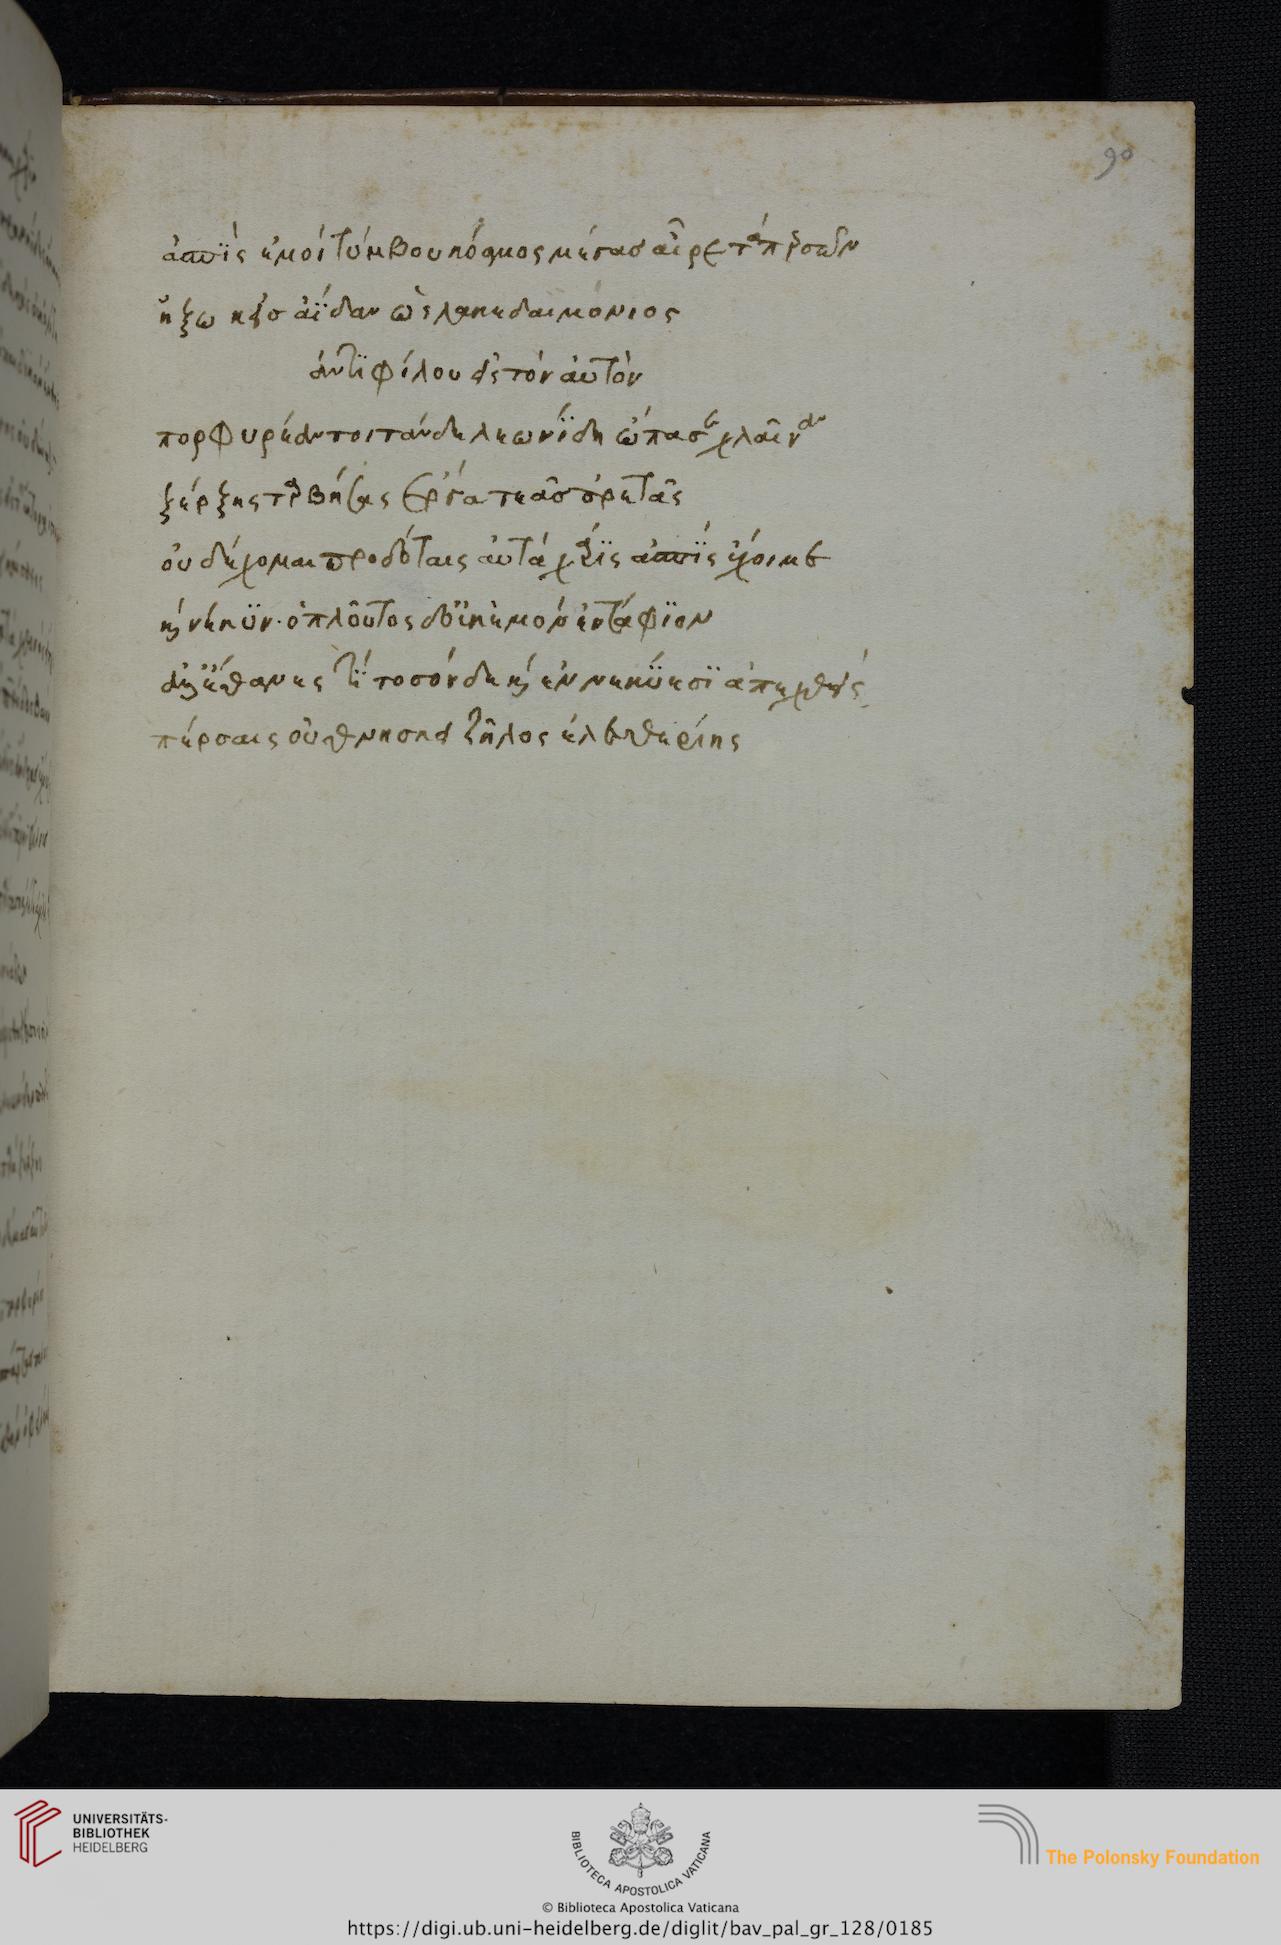 90
ἀσπὶς ἐμοὶ τύμβου κόσμος μέγας αἶρε τὰ περσῶν
ἥξω κεἰς ἀΐδαν ὡς λακεδαιμόνιος
ἀντιφίλου εἰς τὸν αὐτόν
πορφυρέαν τοι τάνδε λεωνίδη ὤπασε χλαῖναν
ξέρξης ταρβήσας ἔργα τεᾶς ἀρετᾶς
οὐ δέχομαι προδόταις αὐτὰ χάρις ἀσπὶς ἔχοι με
καὶ νέκυν· ὁ πλοῦτος δ' οὐκ ἐμὸν ἐντάφιον
ἀλλ' ἔθανες τί τοσόνδε καὶ ἐν νεκύεσσι ἀπεχθής
πέρσαις οὐ θνήσκει ζῆλος ἐλευθερίης
UNIVERSITÄTS-
BIBLIOTHEK
HEIDELBERG
BIBLIOTECA APOSTOLICA VATICANA
The Polonsky Foundation
© Biblioteca Apostolica Vaticana
https://digi.ub.uni-heidelberg.de/diglit/bav_pal_gr_128/0185